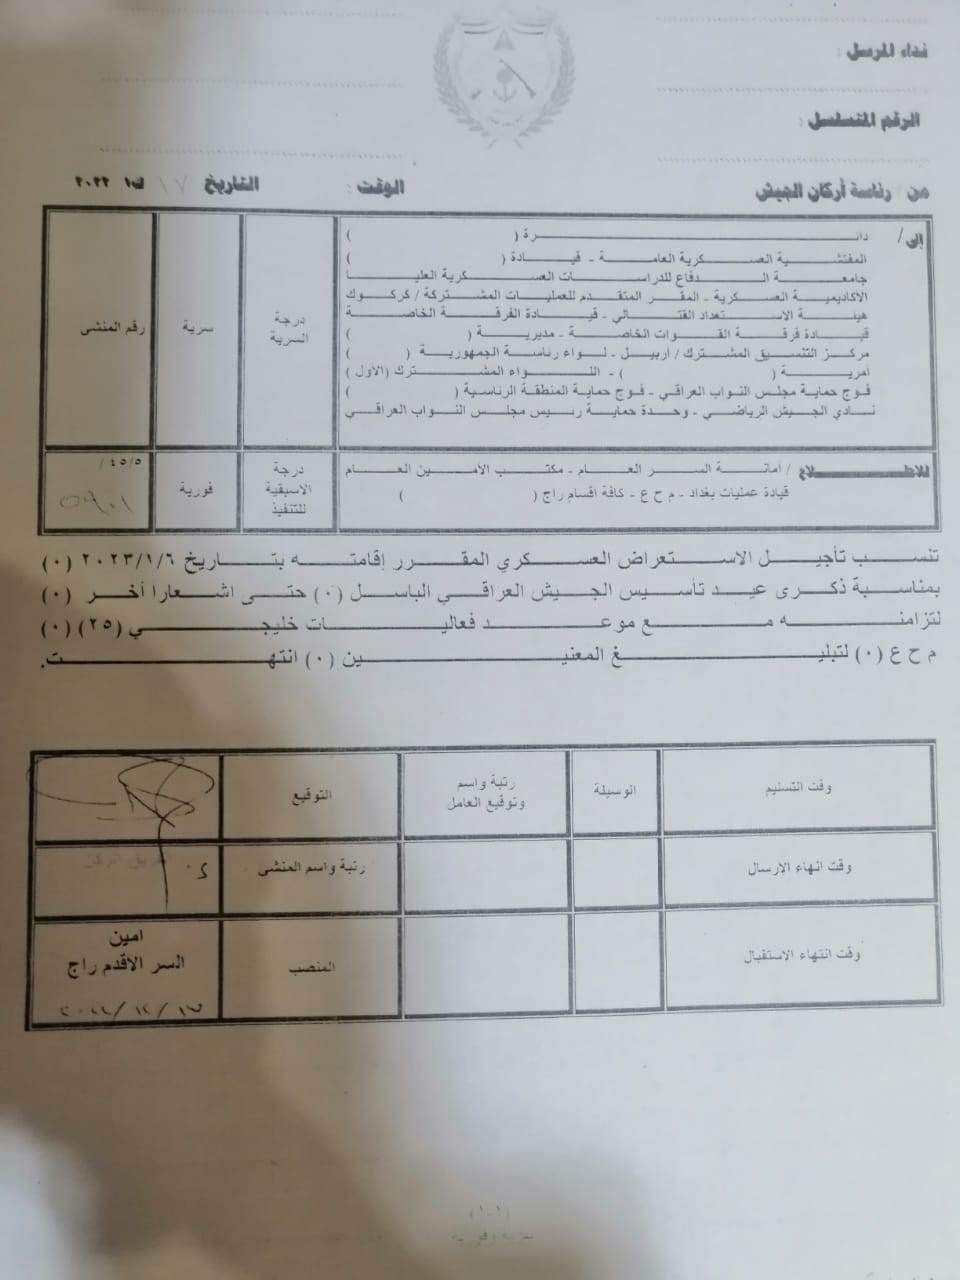 نداء المرسل :
الرقم المتسلسل :
من / رئاسة أركان الجيش
الوقت :
التاريخ ١٧ ك١ ٢٠٢٢
إلى /
دائرة ( )
المفتشية العسكرية العامة - قيادة ( )
جامعة الدفاع للدراسات العسكرية العليا
الاكاديمية العسكرية - المقر المتقدم للعمليات المشتركة / كركوك
هيئة الاستعداد القتالي - قيادة الفرقة الخاصة
قيادة فرقة القوات الخاصة - مديرية ( )
مركز التنسيق المشترك / اربيل - لواء رئاسة الجمهورية ( )
أمرية ( ) - اللواء المشترك (الاول )
فوج حماية مجلس النواب العراقي - فوج حماية المنطقة الرئاسية ( )
نادي الجيش الرياضي - وحدة حماية رئيس مجلس النواب العراقي
درجة السرية
سرية
رقم المنشئ
للاطلاع / أمانة السر العام - مكتب الأمين العام
قيادة عمليات بغداد - م ح ع - كافة اقسام راج ( )
درجة الاسبقية للتنفيذ
فورية
/ ٤٥/٥
تنسب تأجيل الاستعراض العسكري المقرر إقامته بتاريخ ٢٠٢٣/١/٦ (٠)
بمناسبة ذكرى عيد تأسيس الجيش العراقي الباسل (٠) حتى اشعارا أخر (٠)
لتزامنه مع موعد فعاليات خليجي (٢٥) (٠)
م ح ع (٠) لتبليغ المعنيين (٠) انتهت.
وقت التسنيم
الوسيلة
رتبة واسم وتوقيع العامل
التوقيع
وقت انهاء الارسال
رتبة واسم المنشئ
وقت انتهاء الاستقبال
المنصب
امين
السر الاقدم راج
(١-١)